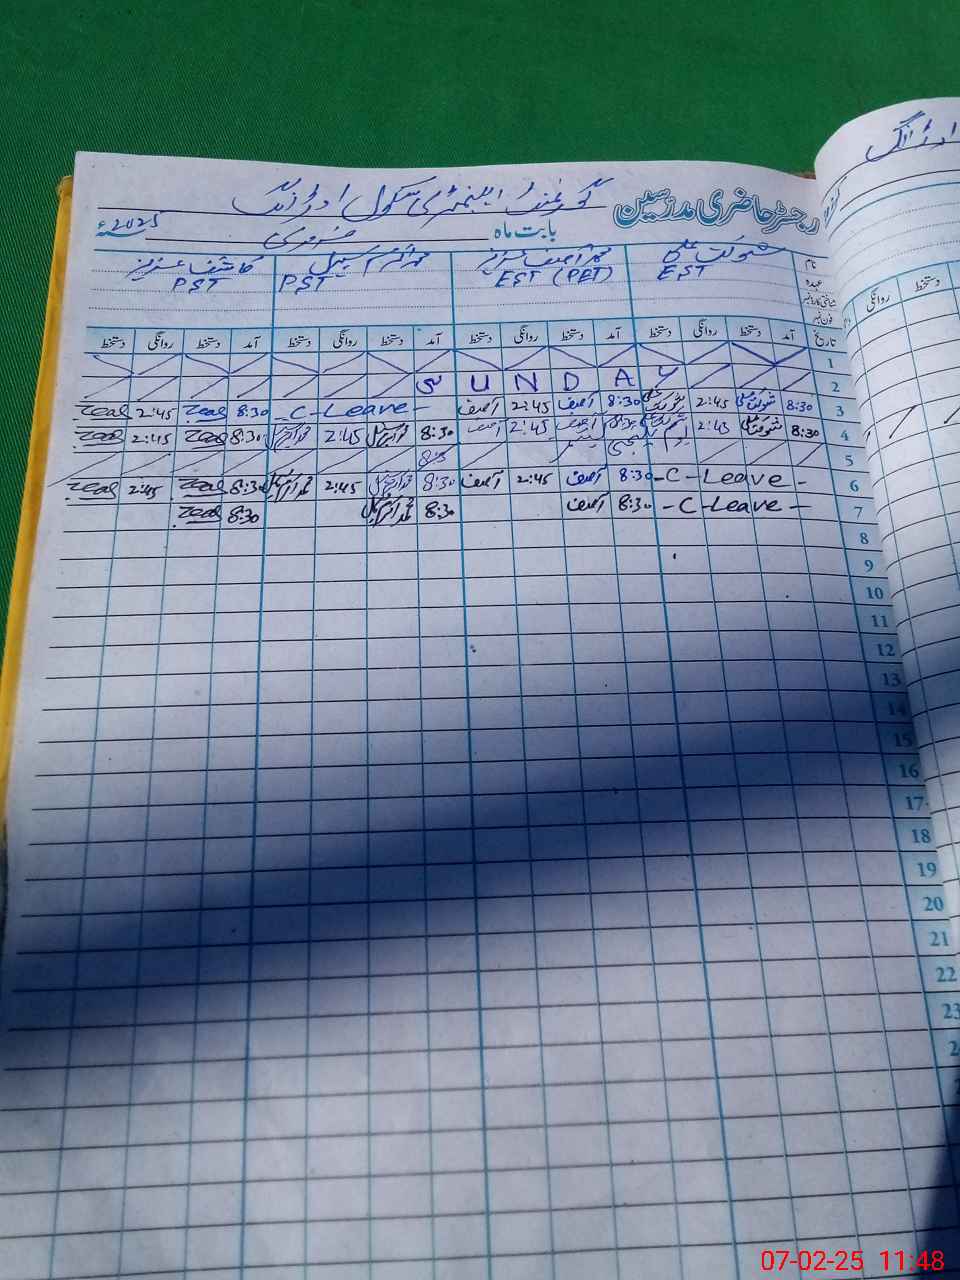 رجسٹر حاضری مدرسین گورنمنٹ ایلیمنٹری سکول
بابت ماہ فروری 2025ء
نام شوکت علی محمد آصف عزیز محمد اکرم سہیل کاشف عزیز
عہدہ EST EST (PET) PST PST
شناختی کارڈ نمبر
فون نمبر
تاریخ آمد دستخط روانگی دستخط آمد دستخط روانگی دستخط آمد دستخط روانگی دستخط آمد دستخط روانگی دستخط
1
2 S U N D A Y
3 8:30 شوکت علی 2:45 شوکت علی 8:30 آصف 2:45 آصف - C - Leave - 8:30 2:45
4 8:30 شوکت علی 2:45 8:30 آصف 2:45 آصف 8:30 2:45 8:30 2:45
5 یوم یکجہتی
6 - C - Leave - 8:30 آصف 2:45 آصف 8:30 2:45 8:30 2:45
7 - C - Leave - 8:30 آصف 8:30 8:30
8
9
10
11
12
13
14
15
16
17
18
19
20
21
22
23
دستخط روانگی
07-02-25 11:48